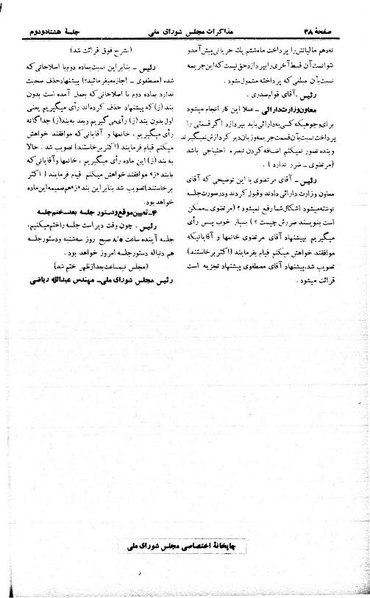 صفحهٔ ۳۸
مذاکرات مجلس شورای ملی
جلسهٔ هشتادودوم
نه‌هم مالیاتش را پرداخت ماده‌ششم یك جریانی پیش‌آمد
نتوانست آن قسط آخری را بپردازد حق نیست که این جریمه
نسبت بآن مبلغی که پرداخته مشمول شود.
رئیس ـ آقای قوام‌صدری.
معاون وزارت دارائی ـ عملا این کار انجام میشود
برای وجوهیکه کسی به دارائی باید بپردازد اگر قسمتی را
پرداخت نسبت بآن قسمت جریمه وزیان دیر کردازش نمیگیرند
وبنده تصور نمیکنم اضافه کردن تبصره احتیاجی باشد
(مرتضوی ـ ضرر ندارد)
رئیس ـ آقای مرتضوی با این توضیحی که آقای
معاون وزارت دارائی دادند وقبول کردند ودرصورت جلسه
نوشته میشود اشکال شما رفع نمیشود؟ (مرتضوی ـ ممکن
است بنویسند ضررش چیست؟) بسیار خوب پس رأی
میگیریم به پیشنهاد آقای مرتضوی خانمها و آقایانیکه
موافقند خواهش میکنم قیام بفرمایند (اکثر برخاستند)
تصویب شد. پیشنهاد آقای مصطفوی پیشنهاد تجزیه است
قرائت میشود.
(بشرح فوق قرائت شد)
رئیس ـ بنابراین نسبت بماده دوم با اصلاحاتی که
شده (مصطفوی ـ اجازه میفرمائید؟) پیشنهاد حذف صحبت
ندارد بماده دوم با اصلاحاتی که بعمل آمده است بدون
بند (ز) که پیشنهاد حذف کرده‌اند رأی میگیریم یعنی
اول بدون بند (ز) رأی میگیریم وبعد به بند (ز) جداگانه
رأی میگیریم. خانمها و آقایانی که موافقند خواهش
میکنم قیام فرمایند (اکثر برخاستند) تصویب شد. حالا
به بند (ز) این ماده رأی میگیریم خانمها وآقایانی که با
بند «ز» موافقند خواهش میکنم قیام فرمایند. (اکثر
برخاستند) تصویب شد بنابراین بند «ز» هم ضمیمه این ماده
است.
۴ـ تعیین موقع ودستور جلسه بعد ـ ختم جلسه
رئیس ـ چون وقت دیر است جلسه را ختم میکنیم،
جلسه آینده ساعت ۸/۵ صبح روز سه‌شنبه ودستور جلسه
هم دنباله دستور جلسه امروز خواهد بود.
(مجلس نیمساعت بعدازظهر ختم شد)
رئیس مجلس شورای ملی ـ مهندس عبدالله ریاضی
چاپخانهٔ اختصاصی مجلس شورای ملی